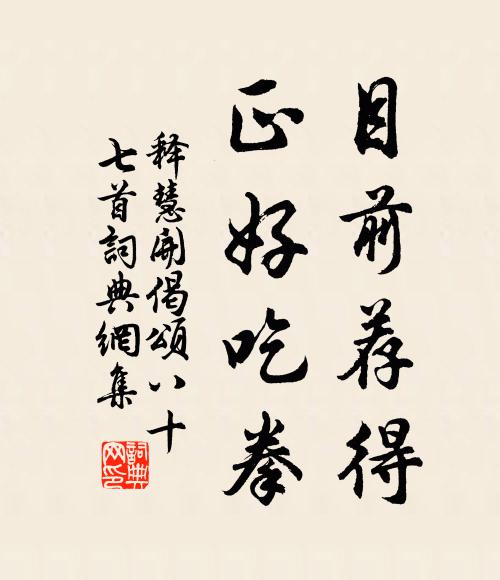 目前荐得
正好吃拳
释慧開偈頌八十
七首詞典網集
詞典
网印